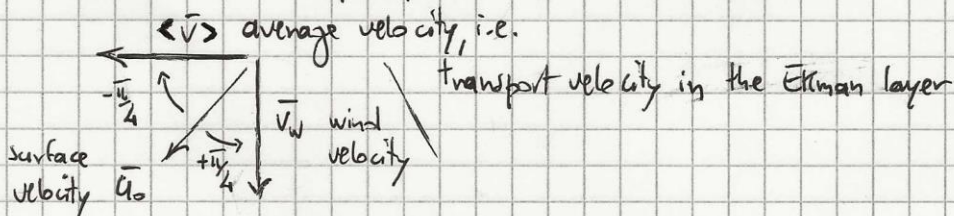 <v̄> average velocity, i.e.
transport velocity in the Ekman layer
-π/4
v̄w wind
velocity
+π/4
surface
velocity ū₀